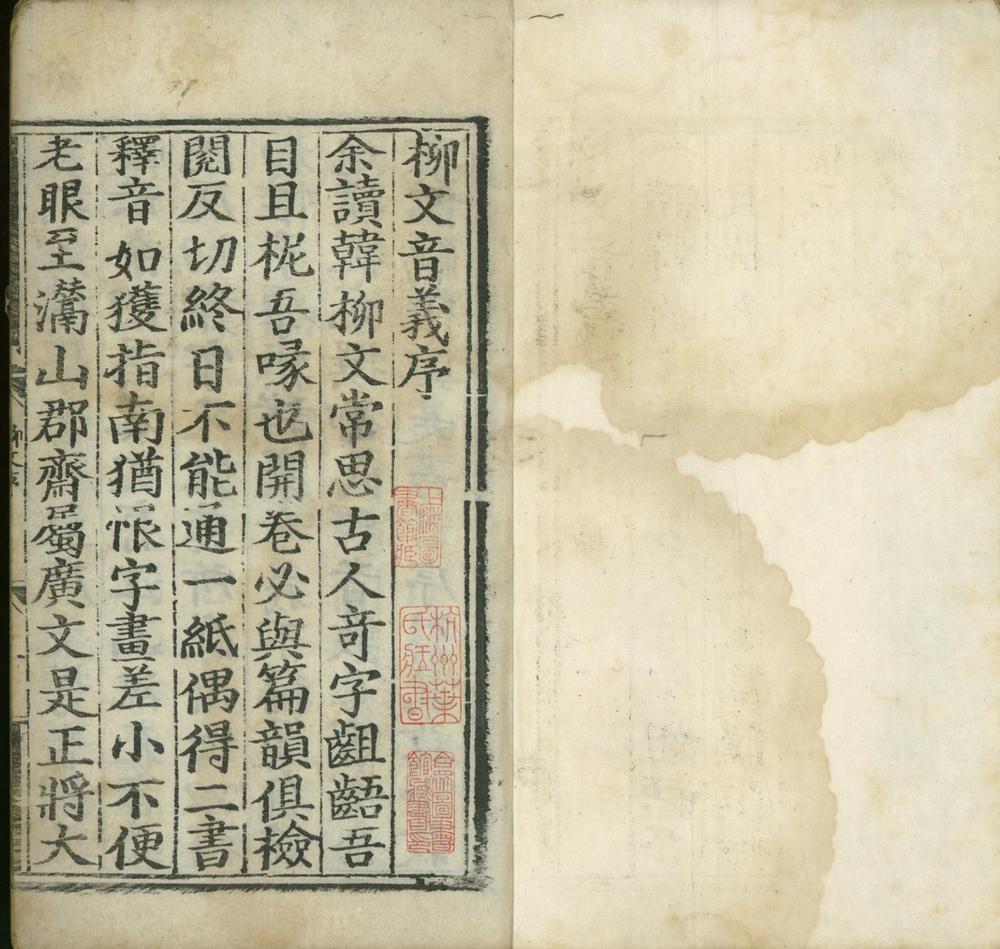 柳文音義序
余讀韓柳文常思古人竒字齟齬吾
目且柅吾喙也開卷必與篇韻俱檢
閱反切終日不能通一紙偶得二書
釋音如獲指南猶恨字畫差小不便
老眼至灊山郡齋屬廣文是正將大
杭州葉氏藏書